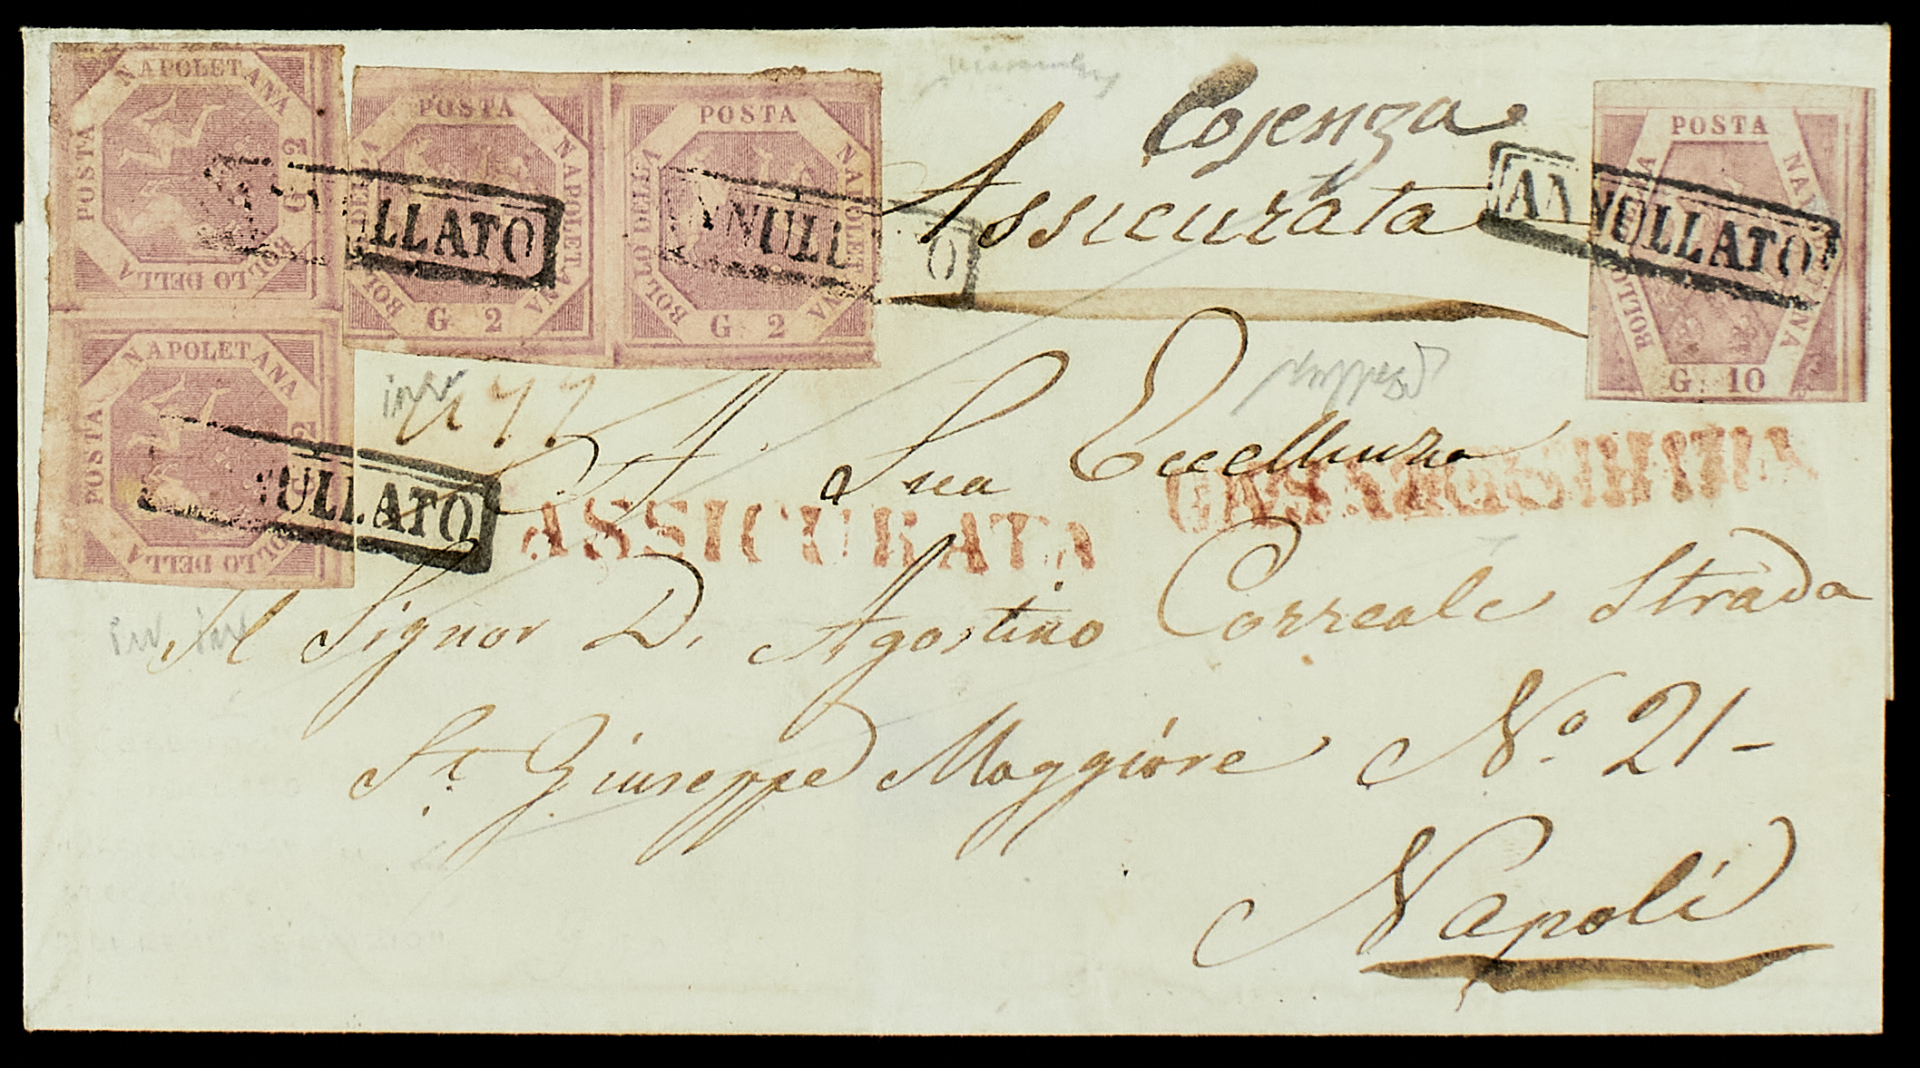 Cosenza
Assicurata
POSTA NAPOLETANA
BOLLO DELLA
G. 2
POSTA NAPOLETANA
BOLLO DELLA
G. 2
POSTA NAPOLETANA
BOLLO DELLA
G. 2
POSTA NAPOLETANA
BOLLO DELLA
G. 2
POSTA NAPOLETANA
BOLLO DELLA
G. 10
ANNULLATO
ANNULLATO
ANNULLATO
ANNULLATO
A Sua Eccellenza
ASSICURATA
Il Signor D. Agostino Correale Strada
St. Giuseppe Maggiore No. 21-
Napoli